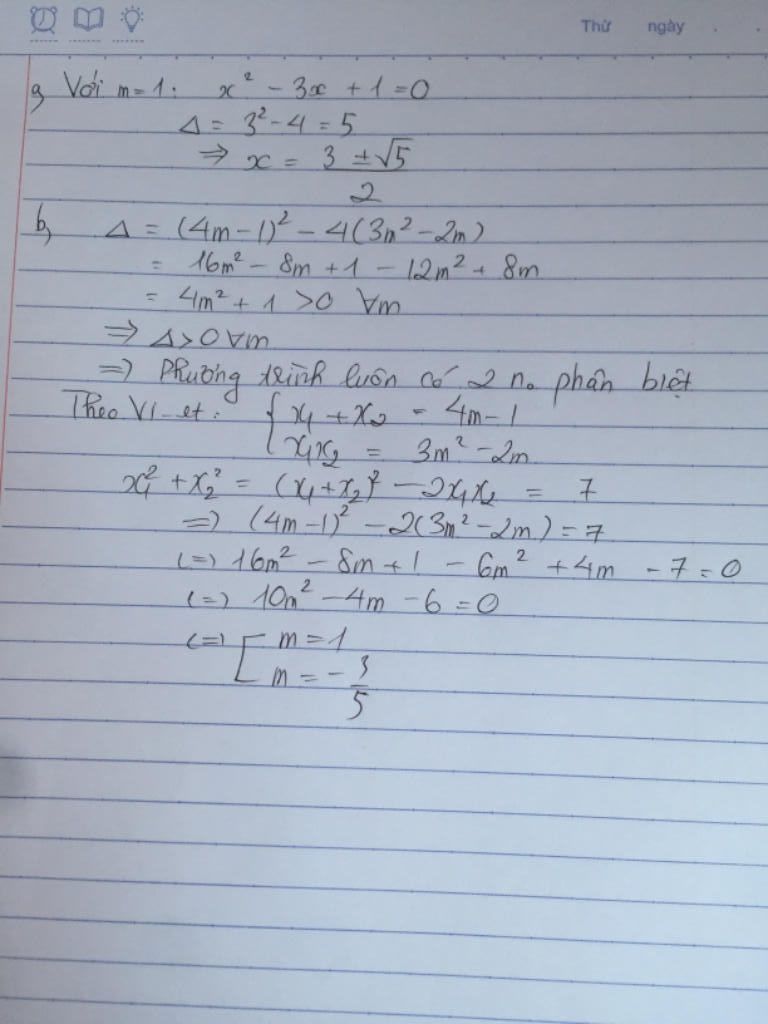 Thứ ngày . .
a, Với m=1: x² - 3x + 1 = 0
Δ = 3² - 4 = 5
⇒ x = (3 ± √5)/2
b, Δ = (4m-1)² - 4(3m² - 2m)
= 16m² - 8m + 1 - 12m² + 8m
= 4m² + 1 > 0 ∀m
⇒ Δ > 0 ∀m
=> Phương trình luôn có 2 n0 phân biệt
Theo Vi-et: { x₁ + x₂ = 4m-1
x₁x₂ = 3m² - 2m
x₁² + x₂² = (x₁+x₂)² - 2x₁x₂ = 7
=> (4m-1)² - 2(3m² - 2m) = 7
(=) 16m² - 8m + 1 - 6m² + 4m - 7 = 0
(=) 10m² - 4m - 6 = 0
(=) [ m = 1
m = -3/5